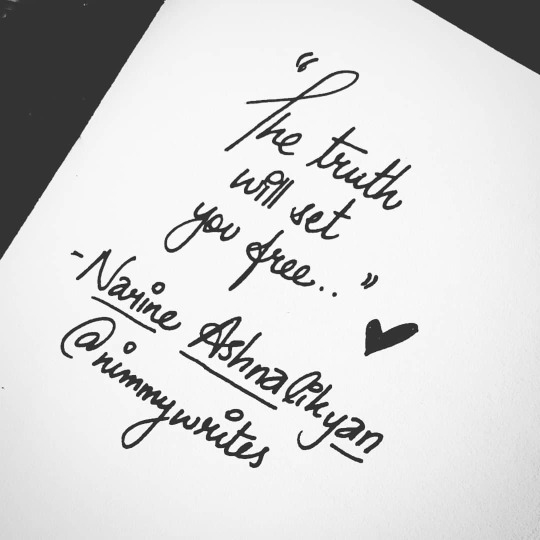 "The truth
will set
you free.."
-Narine Ashnalikyan
@nimmywrites